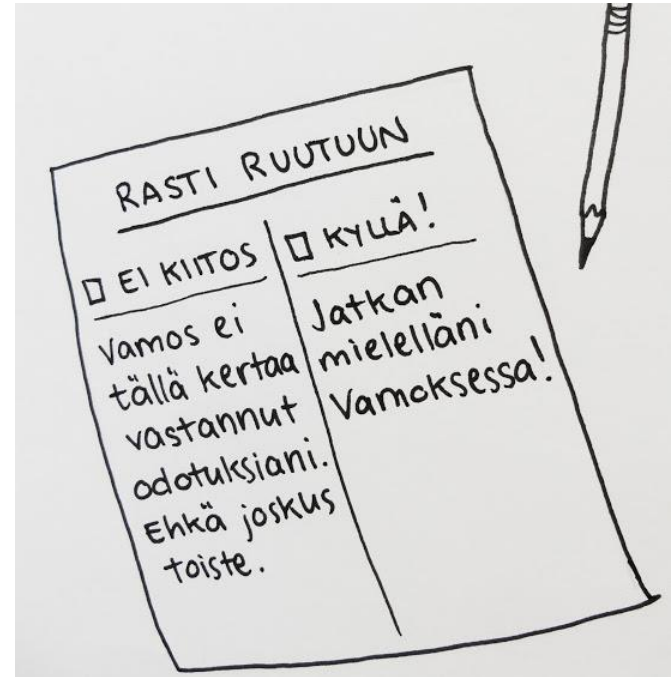 RASTI RUUTUUN
☐ EI KIITOS
Vamos ei
tällä kertaa
vastannut
odotuksiani.
Ehkä joskus
toiste.
☐ KYLLÄ!
Jatkan
mielelläni
Vamoksessa!